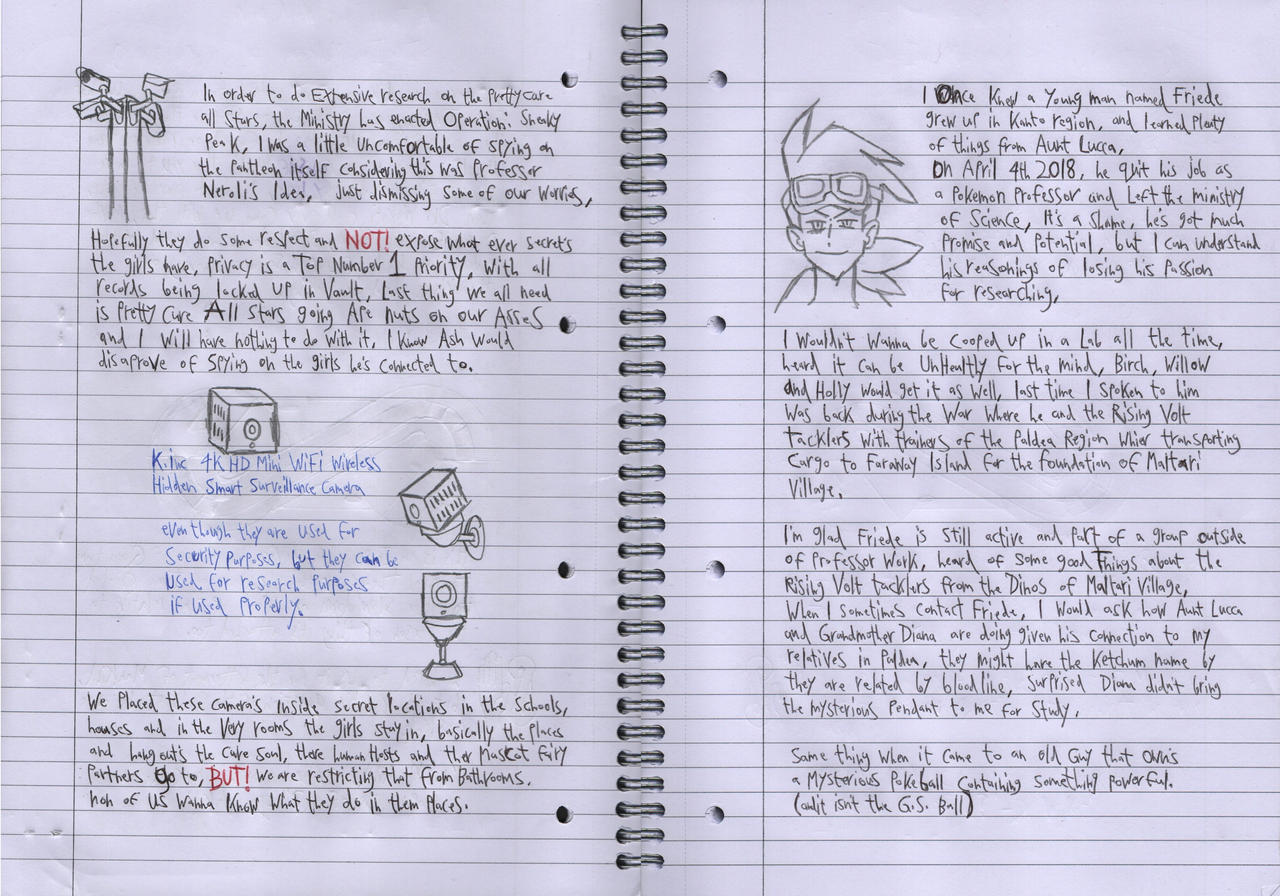 In order to do Extensive research on the pretty cure
all Stars, the Ministry has enacted Operation: Sneaky
Peak, I was a little Uncomfortable of spying on
the Pantheon itself considering this was Professor
Neroli's Idea, just dismissing some of our worries,
Hopefully they do some respect and NOT! expose what ever secret's
the girls have, privacy is a Top Number 1 Priority, With all
records being locked up in Vault, Last thing we all need
is Pretty Cure All Stars going Ape nuts on our Asses
and I will have nothing to do with it, I know Ash Would
disaprove of Spying on the girls he's connected to.
K.inc 4K HD Mini WiFi Wireless
Hidden Smart Surveillance Camera
even though they are used for
Security purposes, but they can be
used for research purposes
if used Properly.
We Placed these camera's Inside secret locations in the Schools,
houses and in the Very rooms the girls stay in, basically the places
and hang out's the Cure Soul, there human Hosts and ther mascot fairy
Partners go to, BUT! we are restricting that from Bathrooms.
non of us wanna know what they do in them places.
I Once Knew a Young man named Friede
grew up in Kanto region, and learned plenty
of things from Aunt Lucca,
On April 4th 2018, he quit his job as
a Pokemon Professor and Left the ministry
of Science, It's a Shame, he's got much
Promise and potential, but I can understand
his reasonings of losing his Passion
for researching,
I Wouldn't Wanna be Cooped up in a Lab all the time,
heard it can be UnHealthy for the mind, Birch, Willow
and Holly would get it as well, last time I spoken to him
Was back during the War Where he and the Rising Volt
tacklers with trainers of the Paldea Region Whier transporting
Cargo to Faraway Island for the foundation of Maltari
Village.
I'm glad Friede is still active and part of a group outside
of Professor Work, heard of some good Things about the
Rising Volt tacklers from the Dinos of Maltari Village,
When I sometimes contact Friede, I would ask how Aunt Lucca
and Grandmother Diana are doing given his connection to my
relatives in Paldea, they might have the Ketchum name by
they are related by bloodline, surprised Diana didn't bring
the mysterious pendant to me for Study,
Same thing when it came to an old Guy that owns
a Mysterious Pokeball Containing something Powerful.
(and it isn't the G.S. Ball)